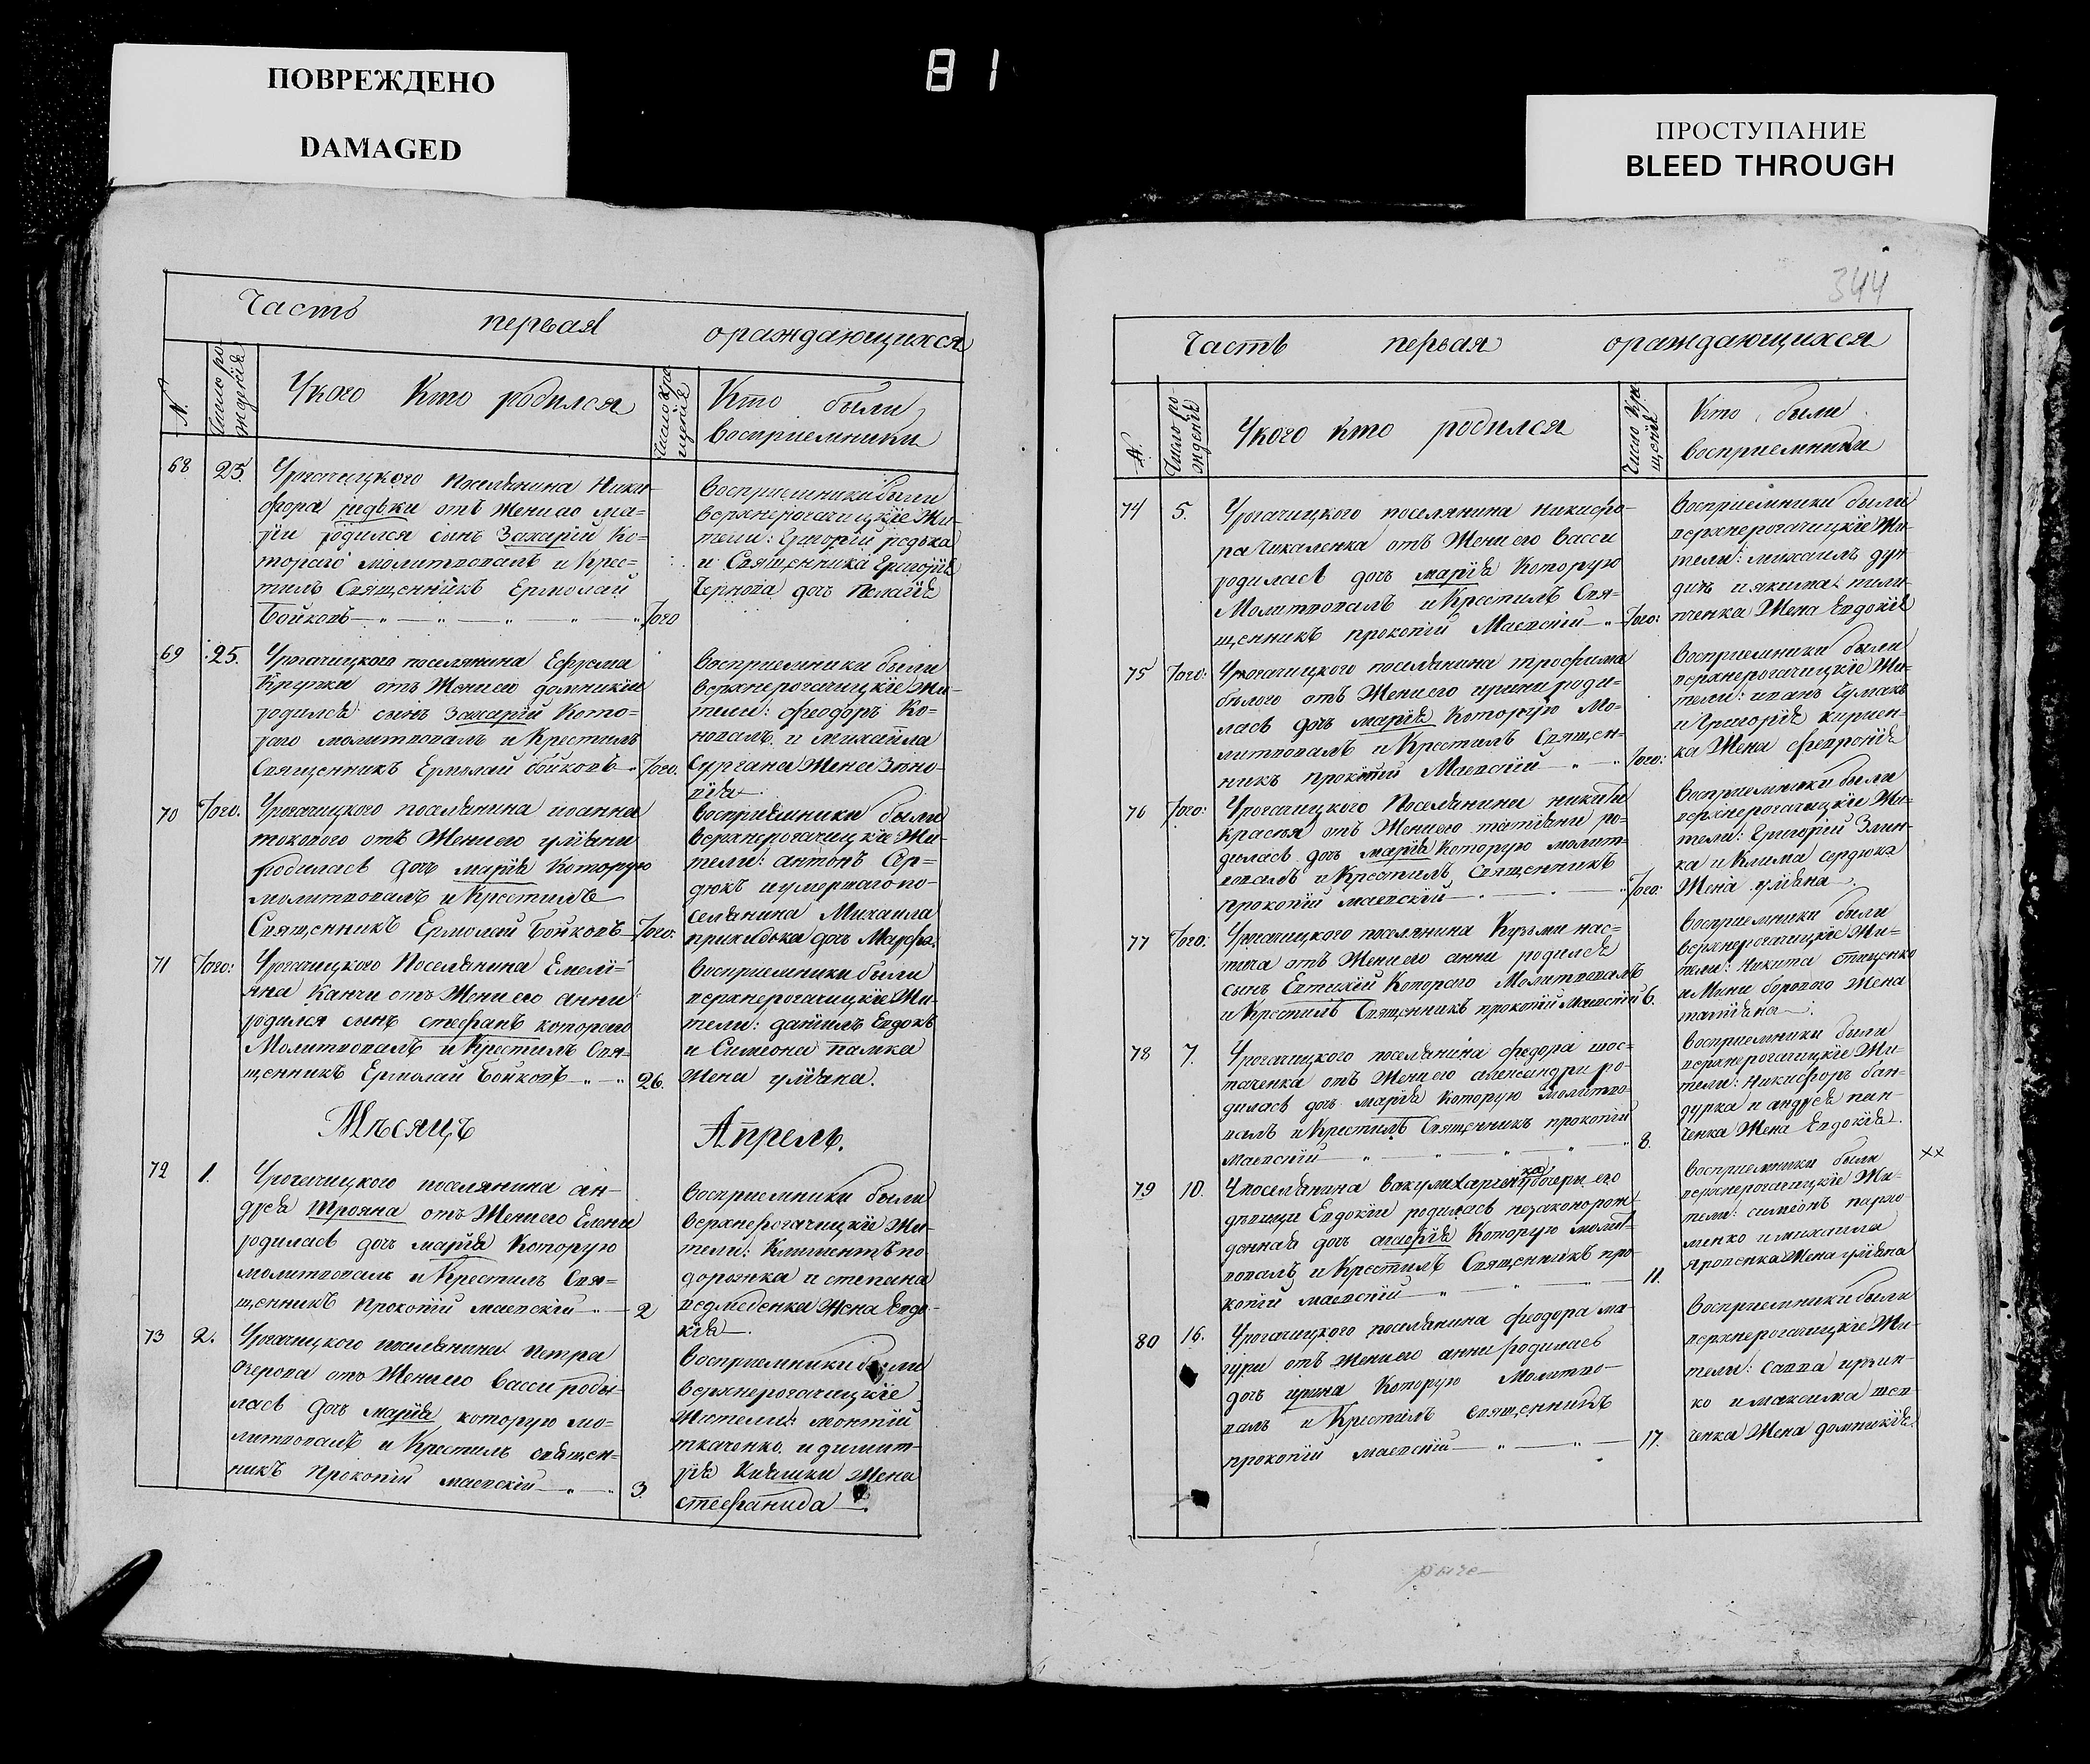 ПОВРЕЖДЕНО
DAMAGED
81
ПРОСТУПАНИЕ
BLEED THROUGH
Часть первая ораждающихся
№ Число рождения Укого Кто родился Число кре щения Кто были восприемники
68 25. Урогачицкого поселянина Ники-
фора редьки отъ жени его ма-
рiи родился сынъ Захарiй Ко-
тораго молитвовалъ и Крес-
тилъ Священникъ Ермолай
Бойковъ Того
восприемники были
верхнерогачицкiе Жи-
тели: Григорiй редька
и Священника Григорiя
Чернова дочь Пелагiя
69 25. Урогачицкого поселянина Ефрема
Крупки отъ Жени его домникiи
родился сынъ Захарiй Кото-
раго молитвовалъ и Крестилъ
Священникъ Ермолай Бойковъ Того.
восприемники были
верхнерогачицкiе Жи-
тели: феодоръ Ко-
новалъ и михаила
Сургана Жена Зѣно-
вiя
70 Того. Урогачицкого поселянина иоанна
токового отъ Жени его улiяни
родилась дочь марiя Которую
молитвовалъ и Крестилъ
Священникъ Ермолай Бойковъ Того.
восприемники были
верхнерогачицкiе Жи-
тели: антонъ Сер-
дюкъ и умершаго по-
селянина Михаила
дочь Марфа.
71 Того: Урогачицкого Поселянина Емелi-
яна Канчи отъ Жени его анни
родился сынъ стефанъ которого
Молитвовалъ и Крестилъ Свя-
щенникъ Ермолай Бойковъ 26.
восприемники были
верхнерогачицкiе Жи-
тели: данiилъ Евдокъ
и Симеона палка
Жена улiяна.
Мѣсяцъ Апрель.
72 1. Урогачицкого поселянина ан-
дрея трояна отъ Жени его Елени
родилась дочь марiя Которую
молитвовалъ и Крестилъ Свя-
щенникъ Прокопiй маевскiй 2
восприемники были
верхнерогачицкiе Жи-
тели: Климентъ по
дорожка и степана
ведмеденка Жена Евдо-
кiя.
73 2. Урогачицкого поселянина Петра
озерова отъ Жени его васси роди-
лась дочь марiя которую мо-
литвовалъ и Крестилъ священ-
никъ Прокопiй маевскiй 3.
восприемники были
верхнерогачицкiе
Жители: монтiй
ткаченко и димит-
рiя Кияшки Жена
стефанида.
344
Часть первая ораждающихся
№ Число рождения Укого кто родился Число кре щения Кто были восприемники
74 5. Урогачицкого поселянина никифо-
ра Чикаленка отъ Жени его васси
родилась дочь марiя Которую
Молитвовалъ и Крестилъ Свя-
щенникъ прокопiй Маевскiй Того:
восприемники были
верхнерогачицкiе Жи-
тели: михаилъ дун
динъ и якима пили-
пченка Жена Евдокiя
75 Того: Урогачицкого поселянина трофима
билого отъ Жени его ирини роди-
лась дочь марiя Которую Мо-
литвовалъ и Крестилъ Священ-
никъ прокопiй Маевскiй Того:
восприемники были
верхнерогачицкiе Жи-
тели: иванъ Чумакъ
и Григорiя кириен-
ка Жена февронiя
76 Того: Урогачицкого Поселянина никити
красюя отъ Жени его татiяни ро-
дилась дочь марiя Которую молит-
вовалъ и Крестилъ Священникъ
прокопiй маевскiй Того:
восприемники были
верхнерогачицкiе Жи-
тели: Григорiй Злин-
ка и Клима сердюка
Жена улiяна
77 Того: Урогачицкого поселянина Кузьми нас-
тича отъ Жени его анни родился
сынъ Евтихiй Которого Молитвовалъ
и Крестилъ Священникъ прокопiй Маевскiй 6.
восприемники были
верхнерогачицкiе Жи-
тели: Никита стаценко
и Мини борового Жена
татiяна.
78 7. Урогачицкого поселянина федора шос-
таченка отъ Жени его александри ро-
дилась дочь марiя Которую молитво-
валъ и Крестилъ Священникъ прокопiй
маевскiй 8.
восприемники были
верхнерогачицкiе Жи-
тели: Никифоръ бан-
дурка и андрея пан-
ченка Жена Евдокiя.
79 10. Упоселянина вакули Харченка дочери его
дѣвици Евдокiи родилась незаконорож-
денная дочь Которую молит-
вовалъ и Крестилъ Священникъ про-
копiй маевскiй 11.
восприемники были
верхнерогачицкiе Жи-
тели: симеонъ пархо
менко и михаила
яровенка Жена улiяна
××
80 16. Урогачицкого поселянина феодора ма-
гури отъ Жени его анни родилась
дочь ирина Которую Молитво-
валъ и Крестилъ священникъ
прокопiй маевскiй 17.
восприемники были
верхнерогачицкiе Жи-
тели: савва
ко и максима шев-
ченка Жена домникiя.